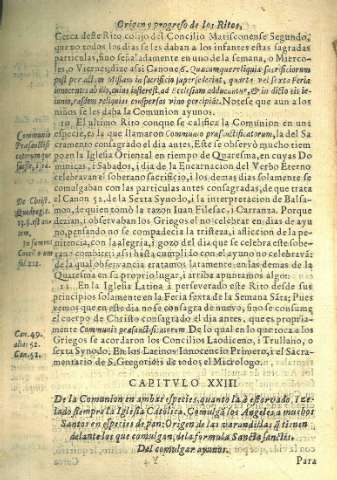 Origen y progreso de los Ritos,
Cerca deste Rito colijo del Concilio Matisconense Segundo,
que no todos los dias se les daban a los infantes estas sagradas
particulas, sino señaladamente en uno de la semana, o Mierco-
les, o Viernes, dizo assi Canone 6. Quaecumque reliquiae sacrificiorum
post peractam Missam in sacrificio superfederint, quarta vel sexta Feria
innocentes ab illo, cuius interest, ad Ecclesiam adducantur, & in dicto ieiu-
nio, easdem reliquias conspersas vino percipiat. Notese que aun a los
niños se les daba la Comunion ayunos.
10. El ultimo Rito conque se califica la Comunion en una
especie, es la que llamaron Communio praesanctificatorum, la del Sa
cramento consagrado el dia antes. Este se observò mucho tiem
po en la Iglesia Oriental en tiempo de Quaresma, en cuyas Do
minicas, i Sabados, i dia de la Encarnacion del Verbo Eterno
celebraban el soberano sacrificio, i los demas dias solamente se
comulgaban con las particulas antes consagradas, de que trata
el Canon 52. de la Sexta Synodo, i la interpretacion de Balsa-
mon, de quien tomò la razon Juan Efesac, i Carranza. Porque
dezian, i observaban los Griegos el no celebrar en dias de ayu
no, pensando no se compadecia la tristeza, i afliccion de la pe-
nitencia, con la alegria, i gozo del dia que se celebra este sobe-
rano combite: i assi hasta cumplido con el ayuno no celebravã
de la qual observancia tratamos latamente en las demas de la
Quaresma en su proprio lugar, i arriba apuntamos algo:
11. En la Iglesia Latina à perseverado este Rito desde sus
principios solamente en la Feria sexta de la Semana Sãta; Pues
vemos que en este dia no se consagra de nuevo, sino se consume
el cuerpo de Christo consagrado el dia antes, que es propria-
mente Communio praesanctificatorum. De lo qual en lo que toca a los
Griegos se acordaron los Concilios Laodiceno, i Trullano, o
sexta Synodo. En los Latinos Innocencio Primero, i el Sacra-
mentario de S. Gregorio, i de todos el Micrologo.
Communio
Praesanctific
De Christ.
Quadrag.
Can. 49.
alias 52.
Can. 52.
CAPITVLO XXIII
De la Comunion en ambas especies, quanto la à estorvado, i ze-
lado siempre la Iglesia Catolica. Comulgã los Angeles a muchos
Santos en especies de pan: Origen de las varandillas q̃ tienen
delante los que comulgan, de la formula Sancta sanctis.
Del comulgar ayunos.
Para